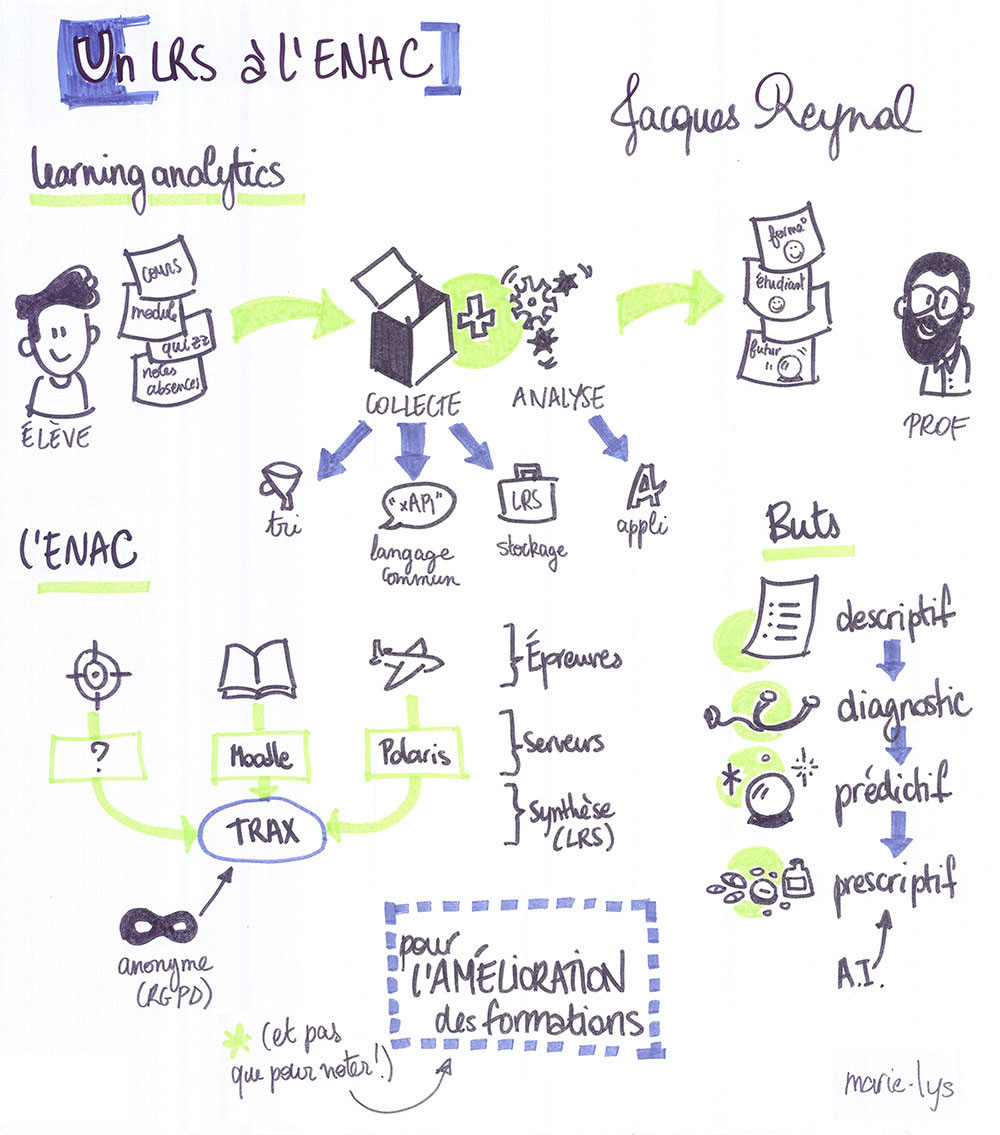 Un LRS à l'ENAC
Jacques Reynal
learning analytics
cours
module
quizz
notes
absences
ÉLÈVE
COLLECTE
ANALYSE
forma°
étudiant
futur
PROF
tri
"xAPI"
langage
commun
LRS
stockage
appli
l'ENAC
Épreuves
?
Moodle
Polaris
Serveurs
TRAX
Synthèse
(LRS)
anonyme
(RGPD)
Buts
descriptif
diagnostic
prédictif
prescriptif
A.I.
pour
l'AMÉLIORATION
des formations
* (et pas
que pour noter!)
marie-lys